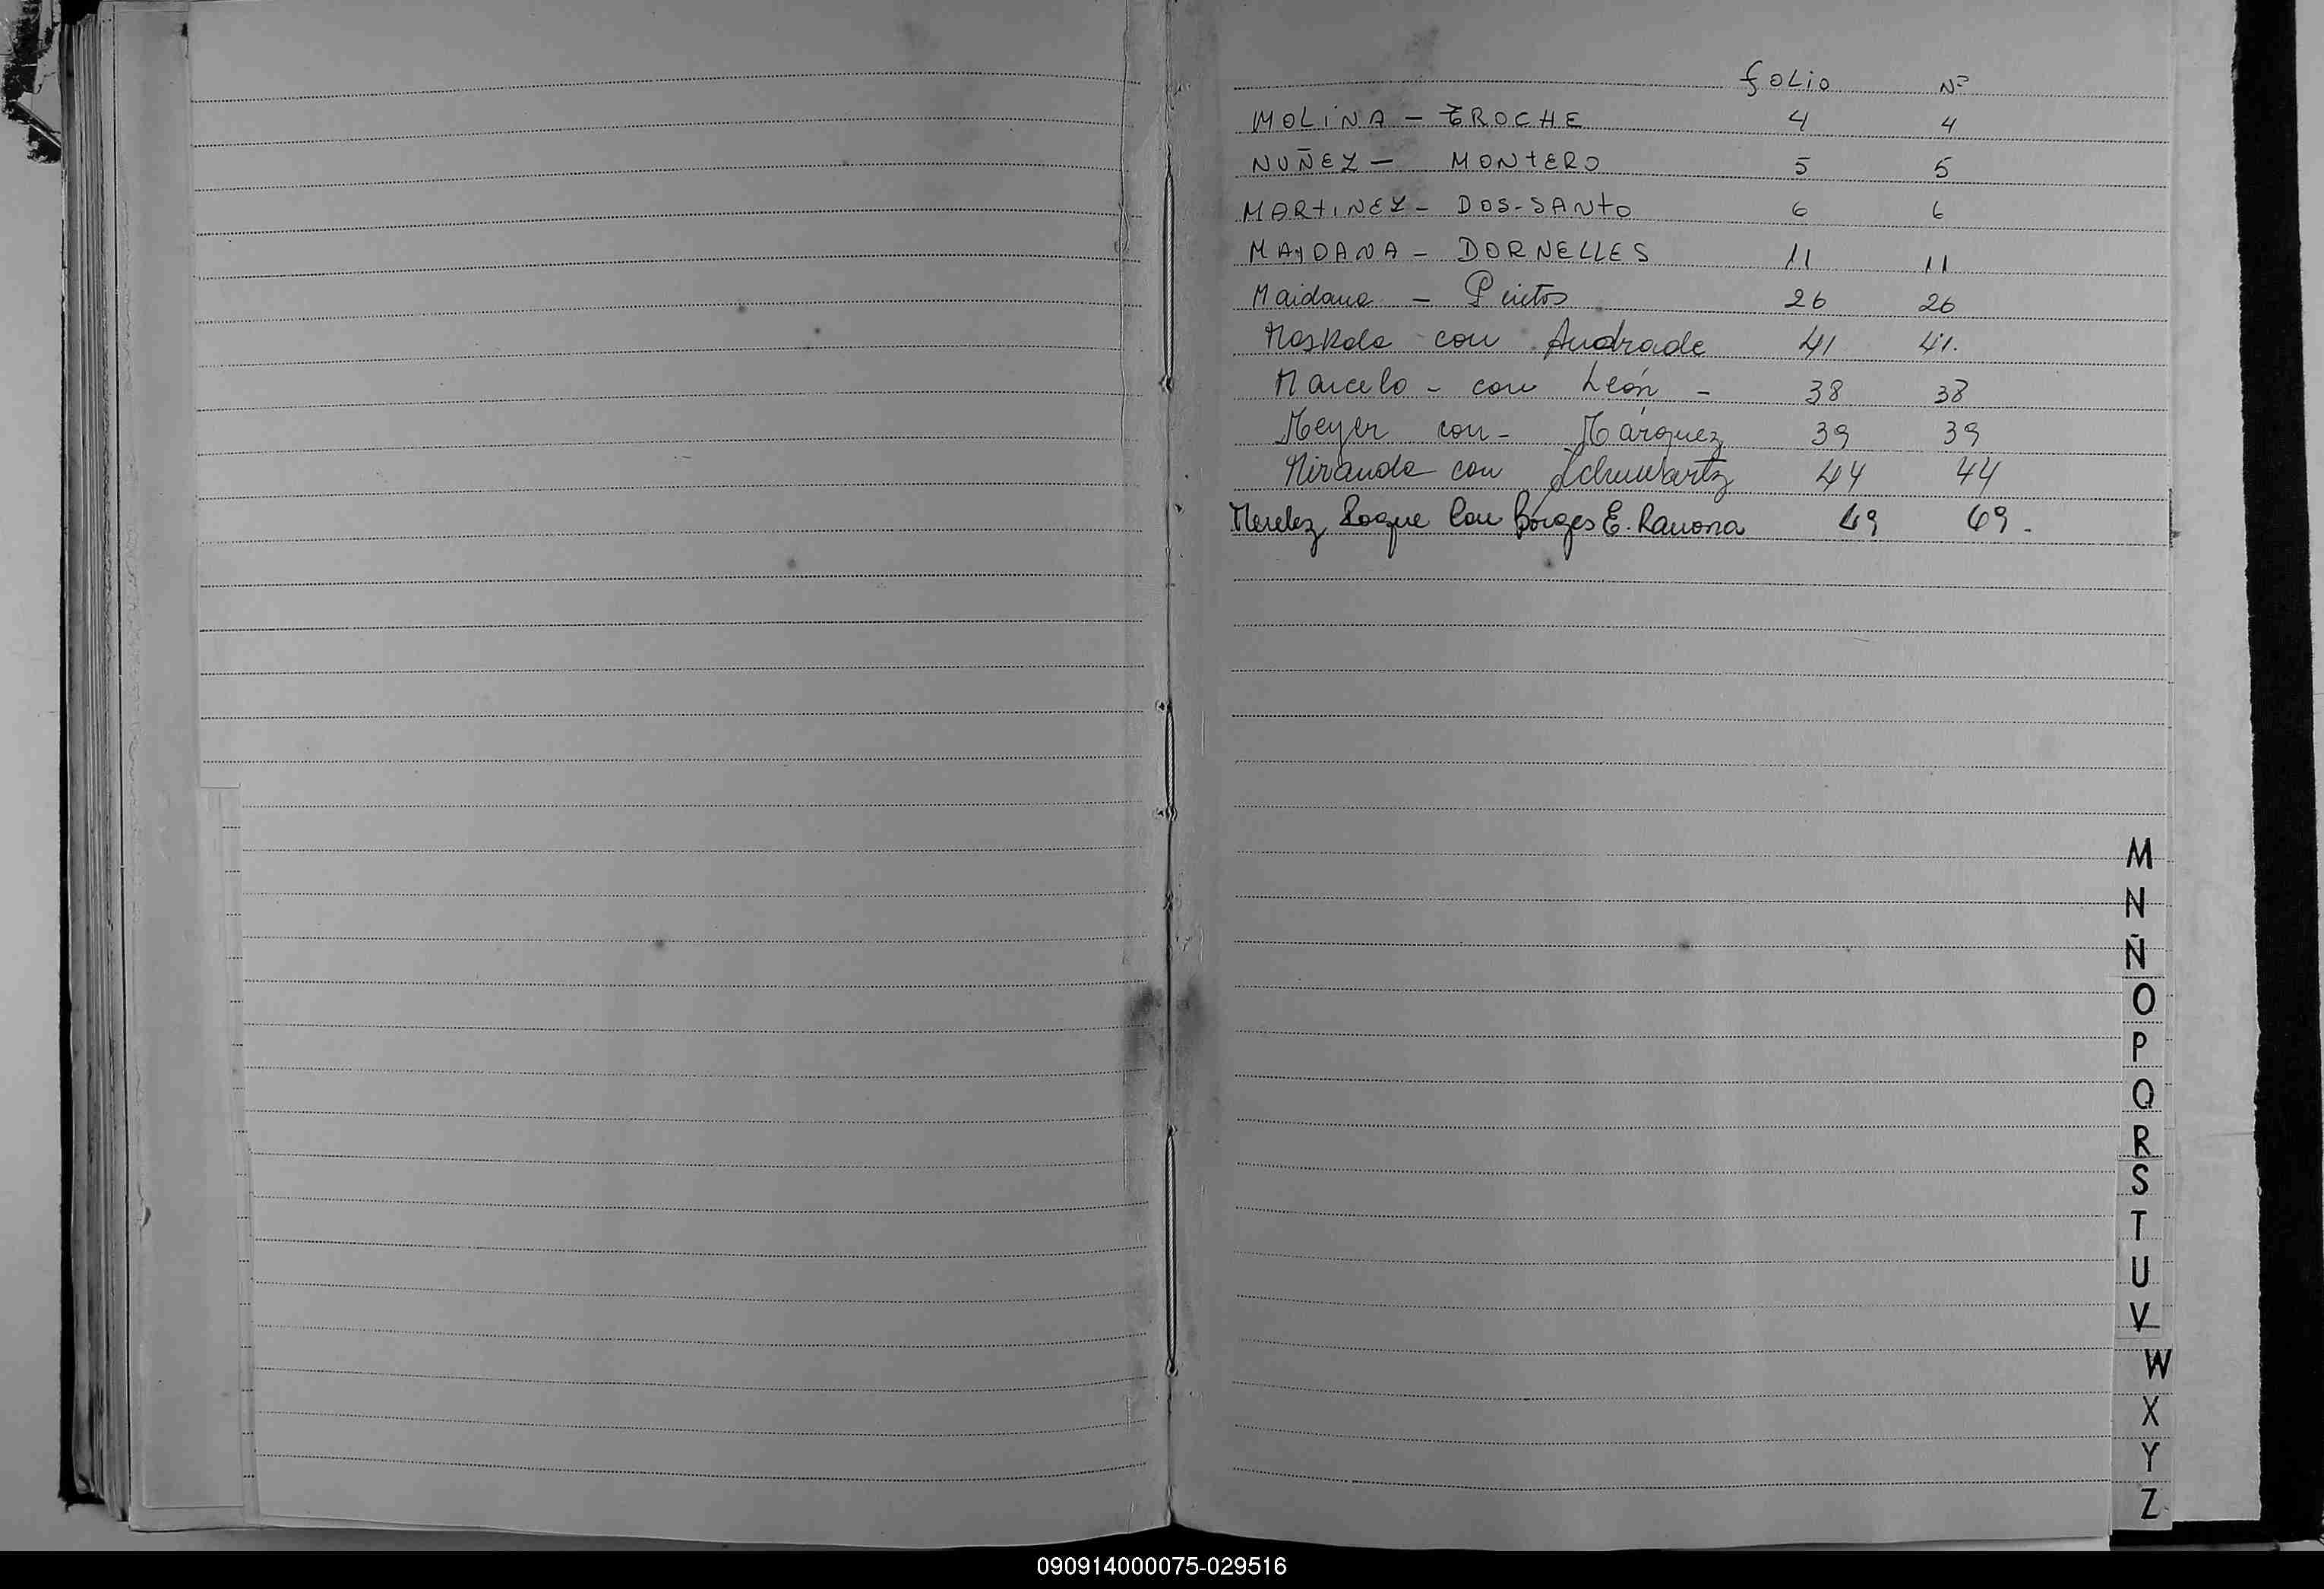 folio Nº
MOLINA - TROCHE 4 4
NUÑEZ - MONTERO 5 5
MARTINEZ - DOS-SANTO 6 6
MAYDANA - DORNELLES 11 11
Maidana - Pintos 26 26
Maskole con Andrade 41 41.
Marcelo - con León - 38 38
Meyer con - Márquez 39 39
Miranda con Schuwartz 44 44
Roque Con Borges E. Ramona 69 69.
M
N
Ñ
O
P
Q
R
S
T
U
V
W
X
Y
Z
090914000075-029516